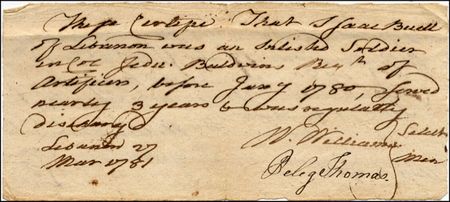 These Certifie That Isaac Buell
of Lebanon was an Inlisted Soldier
in Col Jedu: Baldwins Regt. of
Artificers, before Jany 1780, served
nearly 3 years & was regularly
discharg'd
Lebanon 27
Mar 1781
W. Williams Select
Peleg Thomas Men